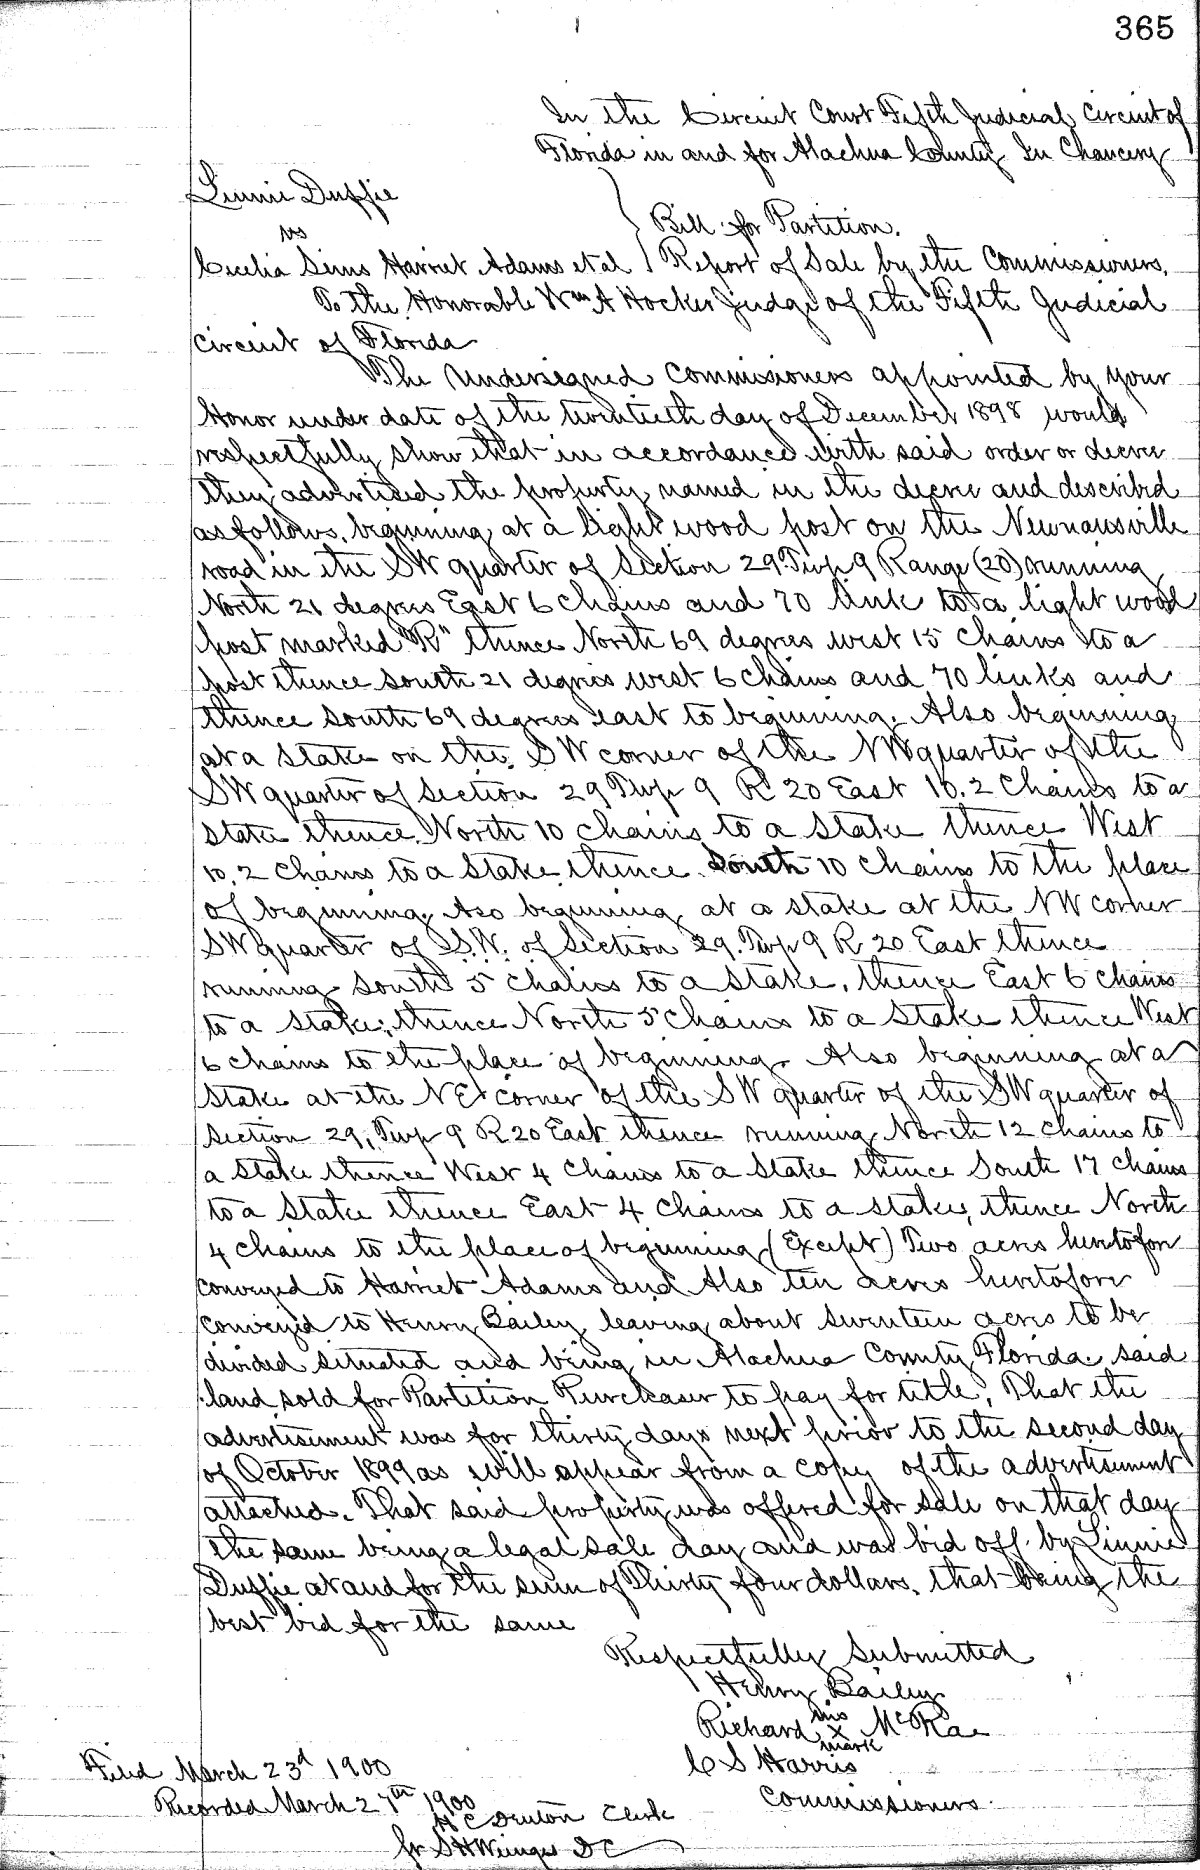 365
In the Circuit Court Fifth Judicial Circuit of
Florida in and for Alachua County In Chancery
Linnie Duffie
vs
Cecelia Sims Harriet Adams et al
Bill for Partition.
Report of Sale by the Commissioners.
To the Honorable Wm A Hocker Judge of the Fifth Judicial
Circuit of Florida
The Undersigned Commissioners appointed by your
Honor under date of the twentieth day of December 1898 would
respectfully show that in accordance with said order or decree
they advertised the property named in the decree and described
as follows, beginning at a light wood post on the Newnansville
road in the SW quarter of Section 29 Twp 9 Range (20) running
North 21 degrees East 6 chains and 70 link to a light wood
post marked "R" thence North 69 degrees west 15 chains to a
post thence south 21 degrees west 6 chains and 70 links and
thence south 69 degrees east to beginning. Also beginning
at a stake on the SW corner of the NW quarter of the
SW quarter of Section 29 Twp 9 R 20 East 10.2 Chains to a
stake thence North 10 chains to a stake thence West
10.2 chains to a stake thence South 10 chains to the place
of beginning. Aso beginning at a stake at the NW corner
SW quarter of S.W. of Section 29 Twp 9 R 20 East thence
running south 5 chains to a stake, thence East 6 chains
to a stake, thence North 5 chains to a stake thence West
6 chains to the place of beginning. Also beginning at a
stake at the NE corner of the SW quarter of the SW quarter of
Section 29, Twp 9 R 20 East thence running North 12 chains to
a stake thence West 4 chains to a stake thence South 17 chains
to a stake thence East 4 chains to a stake, thence North
4 chains to the place of beginning (Except) Two acres heretofore
conveyed to Harriet Adams and Also ten acres heretofore
conveyed to Henry Bailey leaving about seventeen acres to be
divided situated and being in Alachua County Florida. said
land sold for Partition Purchaser to pay for title. That the
advertisement was for thirty days next prior to the second day
of October 1899 as will appear from a copy of the advertisement
attached. That said property was offered for sale on that day
the same being a legal sale day and was bid off by Linnie
Duffie at and for the sum of Thirty four dollars, that being the
best bid for the same
Respectfully Submitted
Henry Bailey
Richard his x mark McRae
C S Harris
Commissioners
Filed March 23d 1900
Recorded March 27th 1900
H C Denton Clerk
S H Wienges DC